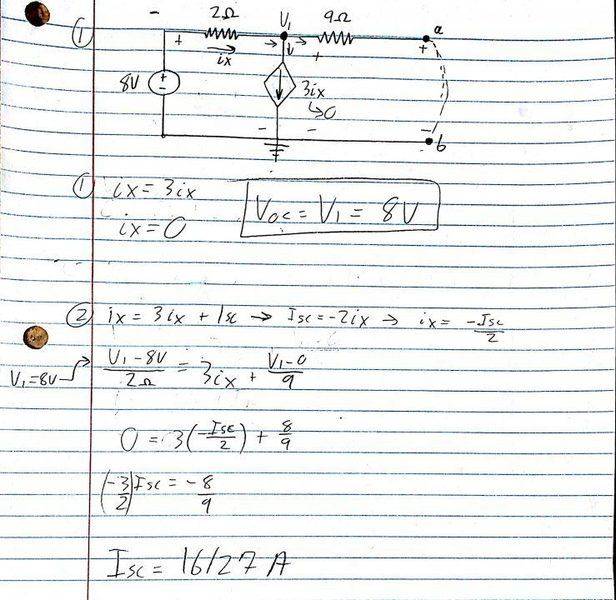 ① 2Ω V₁ 9Ω a
ix
8V 3ix
↳0
b
① ix = 3ix
ix = 0
Voc = V₁ = 8V
② ix = 3ix + Isc → Isc = -2ix → ix = -Isc/2
V₁=8V (V₁-8V)/2Ω = 3ix + (V₁-0)/9
0 = 3(-Isc/2) + 8/9
(-3/2)Isc = -8/9
Isc = 16/27 A